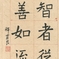 智者從
善如流